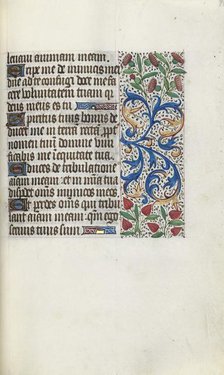 leuam animam meam.
Eripe me de inimicis meis
domine ad te confugi doce me
facere voluntatem tuam quia
deus meus es tu
Spiritus tuus bonus de
ducet me in terra recta, prop
ter nomen tuum domine viui
ficabis me in equitate tua.
Educes de tribulatione
animam meam: et in mia tua
disperdes oms inimicos meos
Et perdes oms qui tribu
lant aiam meam: qm ego
seruus tuus sum